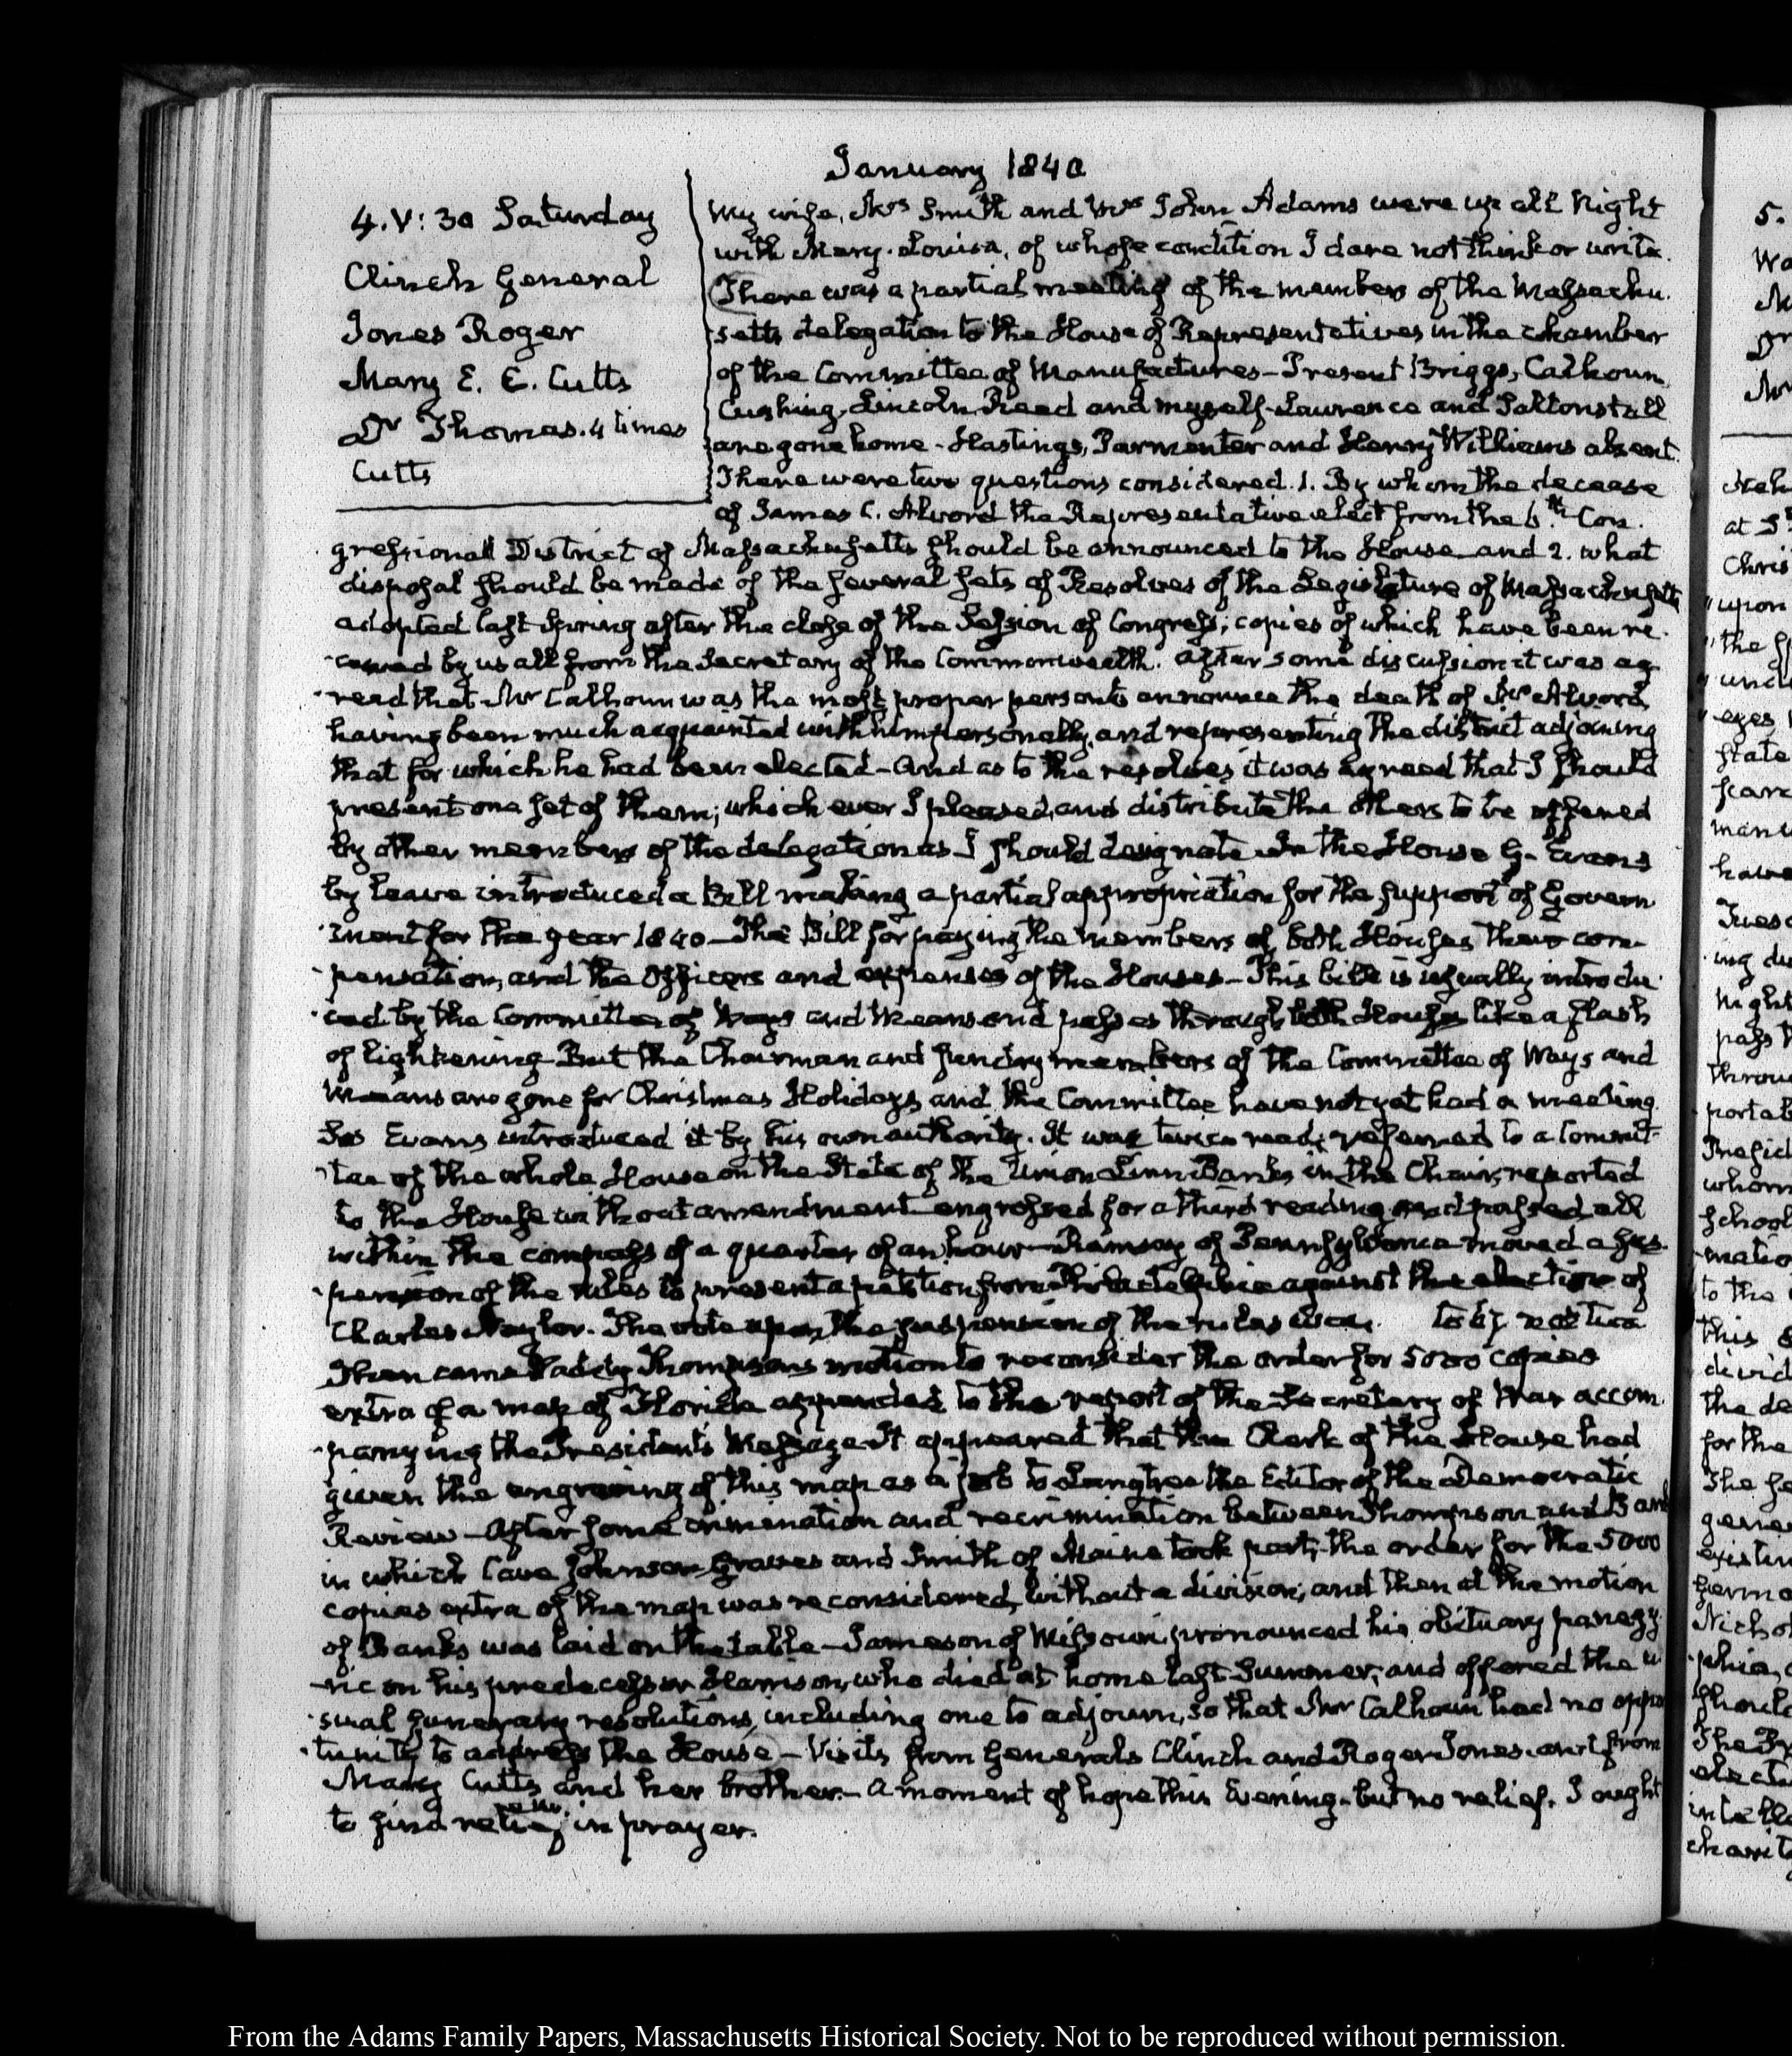 January 1840
4. V: 30 Saturday
Clinch General
Jones Roger
Mary E. E. Cutts
Dr Thomas. 4 times
Cutts
My wife, Mrs Smith and Mrs John Adams were up all Night
with Mary-Louisa, of whose condition I dare not think or write.
There was a partial meeting of the members of the Massachu-
setts delegation to the House of Representatives in the chamber
of the Committee of Manufactures – Present Briggs, Calhoun,
Cushing, Lincoln, Reed and myself. Lawrence and Saltonstall
are gone home – Hastings, Parmenter and Henry Williams absent.
There were two questions considered. 1. By whom the decease
of James C. Alvord the Representative elect from the 6.th Con-
gressional District of Massachusetts should be announced to the House and 2. what
disposal should be made of the several sets of Resolves of the Legislature of Massachusetts
adopted last Spring after the close of the Session of Congress; copies of which have been re-
ceived by us all from the Secretary of the Commonwealth. After some discussion it was ag-
reed that Mr Calhoun was the most proper person to announce the death of Mr Alvord,
having been much acquainted with him personally, and representing the district adjoining
that for which he had been elected – And as to the resolves it was agreed that I should
present one set of them; which ever I pleased, and distribute the others to be offered
by other members of the delegation as I should designate. In the House G. Evans
by leave introduced a Bill making a partial appropriation for the support of Govern-
ment for the year 1840 – The Bill for paying the members of both Houses their com-
pensation, and the Officers and expenses of the Houses – This bill is usually introdu-
ced by the Committee of Ways and Means and passes through both Houses like a flash
of lightening. But the Chairman and sundry members of the Committee of Ways and
Means are gone for Christmas Holidays, and the Committee have not yet had a meeting
So Evans introduced it by his own authority. It was twice read; referred to a Commit-
tee of the whole House on the State of the Union Linn Banks in the Chair, reported
to the House without amendment engrossed for a third reading and passed all
within the compass of a quarter of an hour – Ramsay of Pennsylvania moved a sus-
pension of the rules to present a petition from Philadelphia against the election of
Charles Naylor. The vote upon the suspension of the rules was to by not two
Then came Waddy Thompson's motion to reconsider the order for 5000 copies
extra of a map of Florida appended to the report of the Secretary of War accom-
panying the President's Message. It appeared that the Clerk of the House had
given the engraving of this map as a job to Langtree the Editor of the Democratic
Review – After some crimination and recrimination between Thompson and Banks
in which Cave Johnson, Graves and Smith of Maine took part, the order for the 5000
copies extra of the map was reconsidered, without a division; and then at the motion
of Banks was laid on the table – Jameson of Missouri, pronounced his obituary panegy-
ric on his predecessor Harrison, who died at home last Summer; and offered the u-
sual funerary resolutions, including one to adjourn, so that Mr Calhoun had no oppor-
tunity to address the House – Visits from Generals Clinch and Roger Jones. and from
Mary Cutts and her brother. – A moment of hope this Evening – but no relief. I ought
to find relief in prayer.
5.
at
Chris
upon
the
eyes
state
have
ing
night
pass
whom
school
to the
this
divid
the de
for the
gener
elect